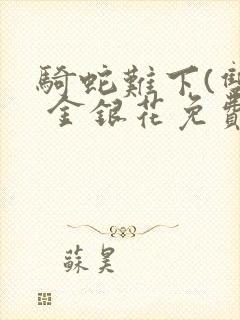 騎蛇難下(雙
金銀花免費
蘇昊